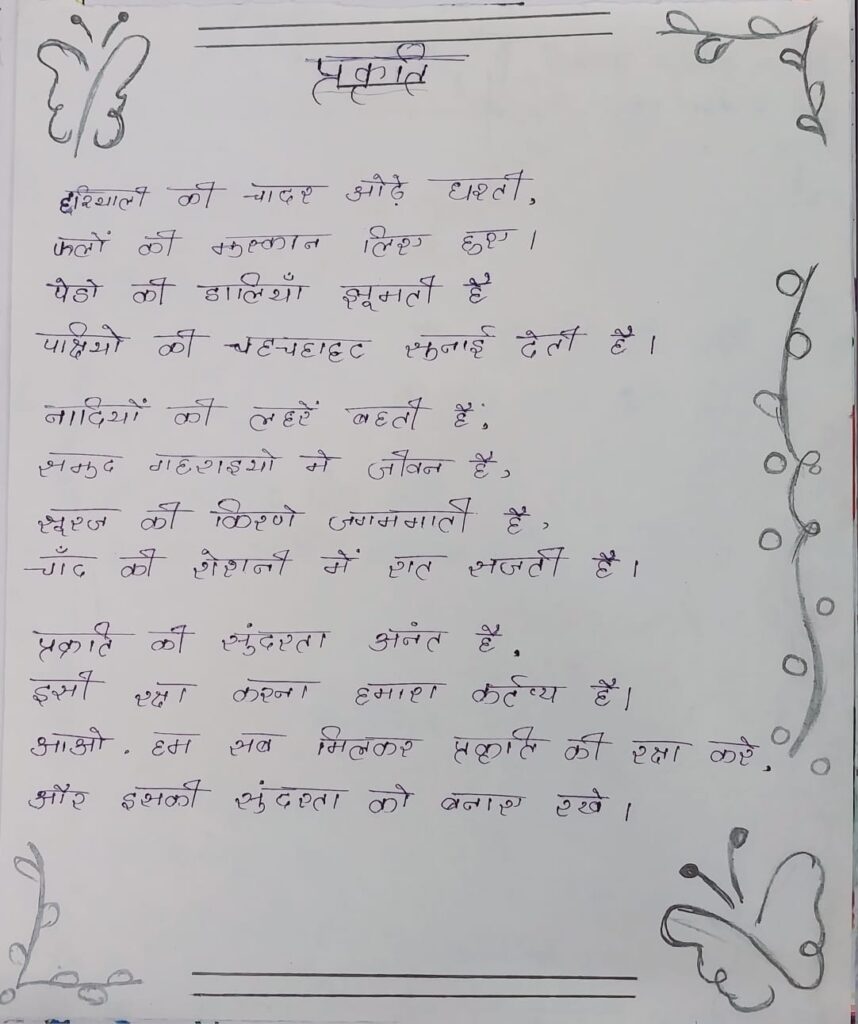 प्रकृति
हरियाली की चादर ओढ़े धरती,
फलों की मुस्कान लिए हुए।
पेडो की डालियाँ झूमती है
पाक्षियो की चहचहाहट सुनाई देती है।
नादियों की लहरें बहती है,
समुद गहराइयो मे जीवन है,
सूरज की किरणे जगममाती है,
चाँद की रोशनी में रात सजती है।
प्रकृति की सुंदरता अनंत है,
इसी रक्षा करना हमारा कर्तव्य है।
आओ, हम सब मिलकर प्रकृति की रक्षा करे,
और इसकी सुंदरता को बनाए रखे।